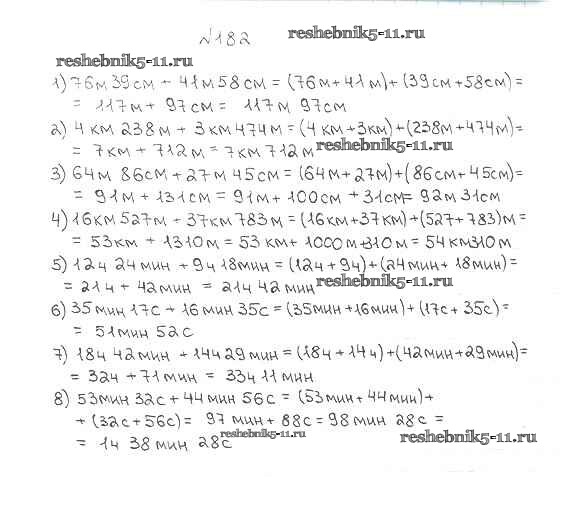 №182 reshebnik5-11.ru
reshebnik5-11.ru
1) 76м 39см + 41м 58см = (76м+41м)+(39см+58см)=
= 117м + 97см = 117м 97см
2) 4км 238м + 3км 474м = (4км+3км)+(238м+474м)=
= 7км + 712м = 7км 712м reshebnik5-11.ru
3) 64м 86см + 27м 45см = (64м+27м)+(86см+45см)=
= 91м + 131см = 91м + 100см + 31см = 92м 31см
4) 16км 527м + 37км 783м = (16км+37км)+(527+783)м =
= 53км + 1310м = 53км + 1000м+310м = 54км310м
5) 12ч 24мин + 9ч 18мин = (12ч+9ч)+(24мин+18мин)=
= 21ч + 42мин = 21ч 42мин reshebnik5-11.ru
6) 35мин 17с + 16мин 35с = (35мин+16мин)+(17с+35с)=
= 51мин 52с
7) 18ч 42мин + 14ч 29мин = (18ч+14ч)+(42мин+29мин)=
= 32ч + 71мин = 33ч 11мин
8) 53мин 32с + 44мин 56с = (53мин+44мин)+
+ (32с+56с)= 97мин + 88с = 98мин 28с =
reshebnik5-11.ru reshebnik5-11.ru
= 1ч 38мин 28с